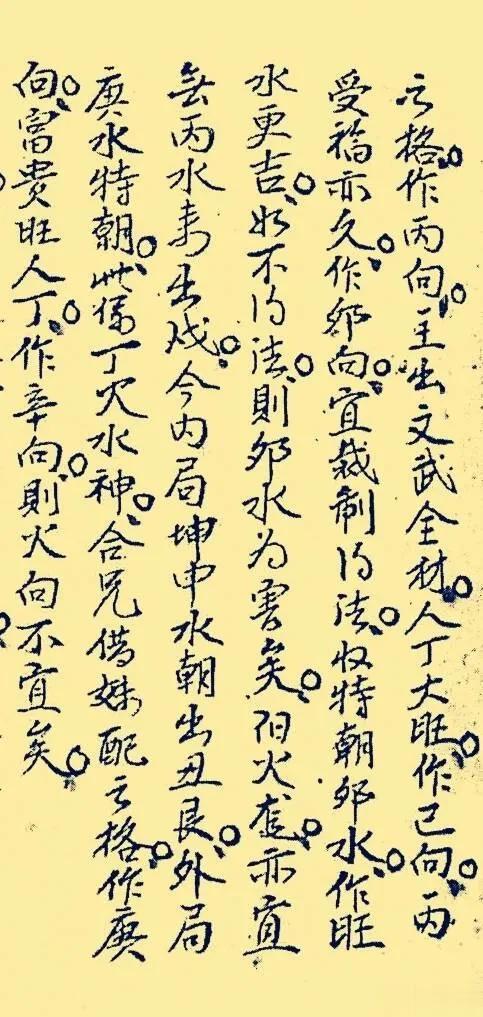 之格。作丙向。主出文武全材。人丁大旺。作巳向。丙
受福亦久。作卯向。宜裁制得法。收特朝卯水。作旺
水更吉。如不得法。則卯水为害矣。阳火龙。亦宜
丙水来出戌。今内局坤申水朝出丑艮。外局
庚水特朝。此係丁火水神。合兄借妹配之格。作庚
向。富贵旺人丁。作辛向。則火向不宜矣。